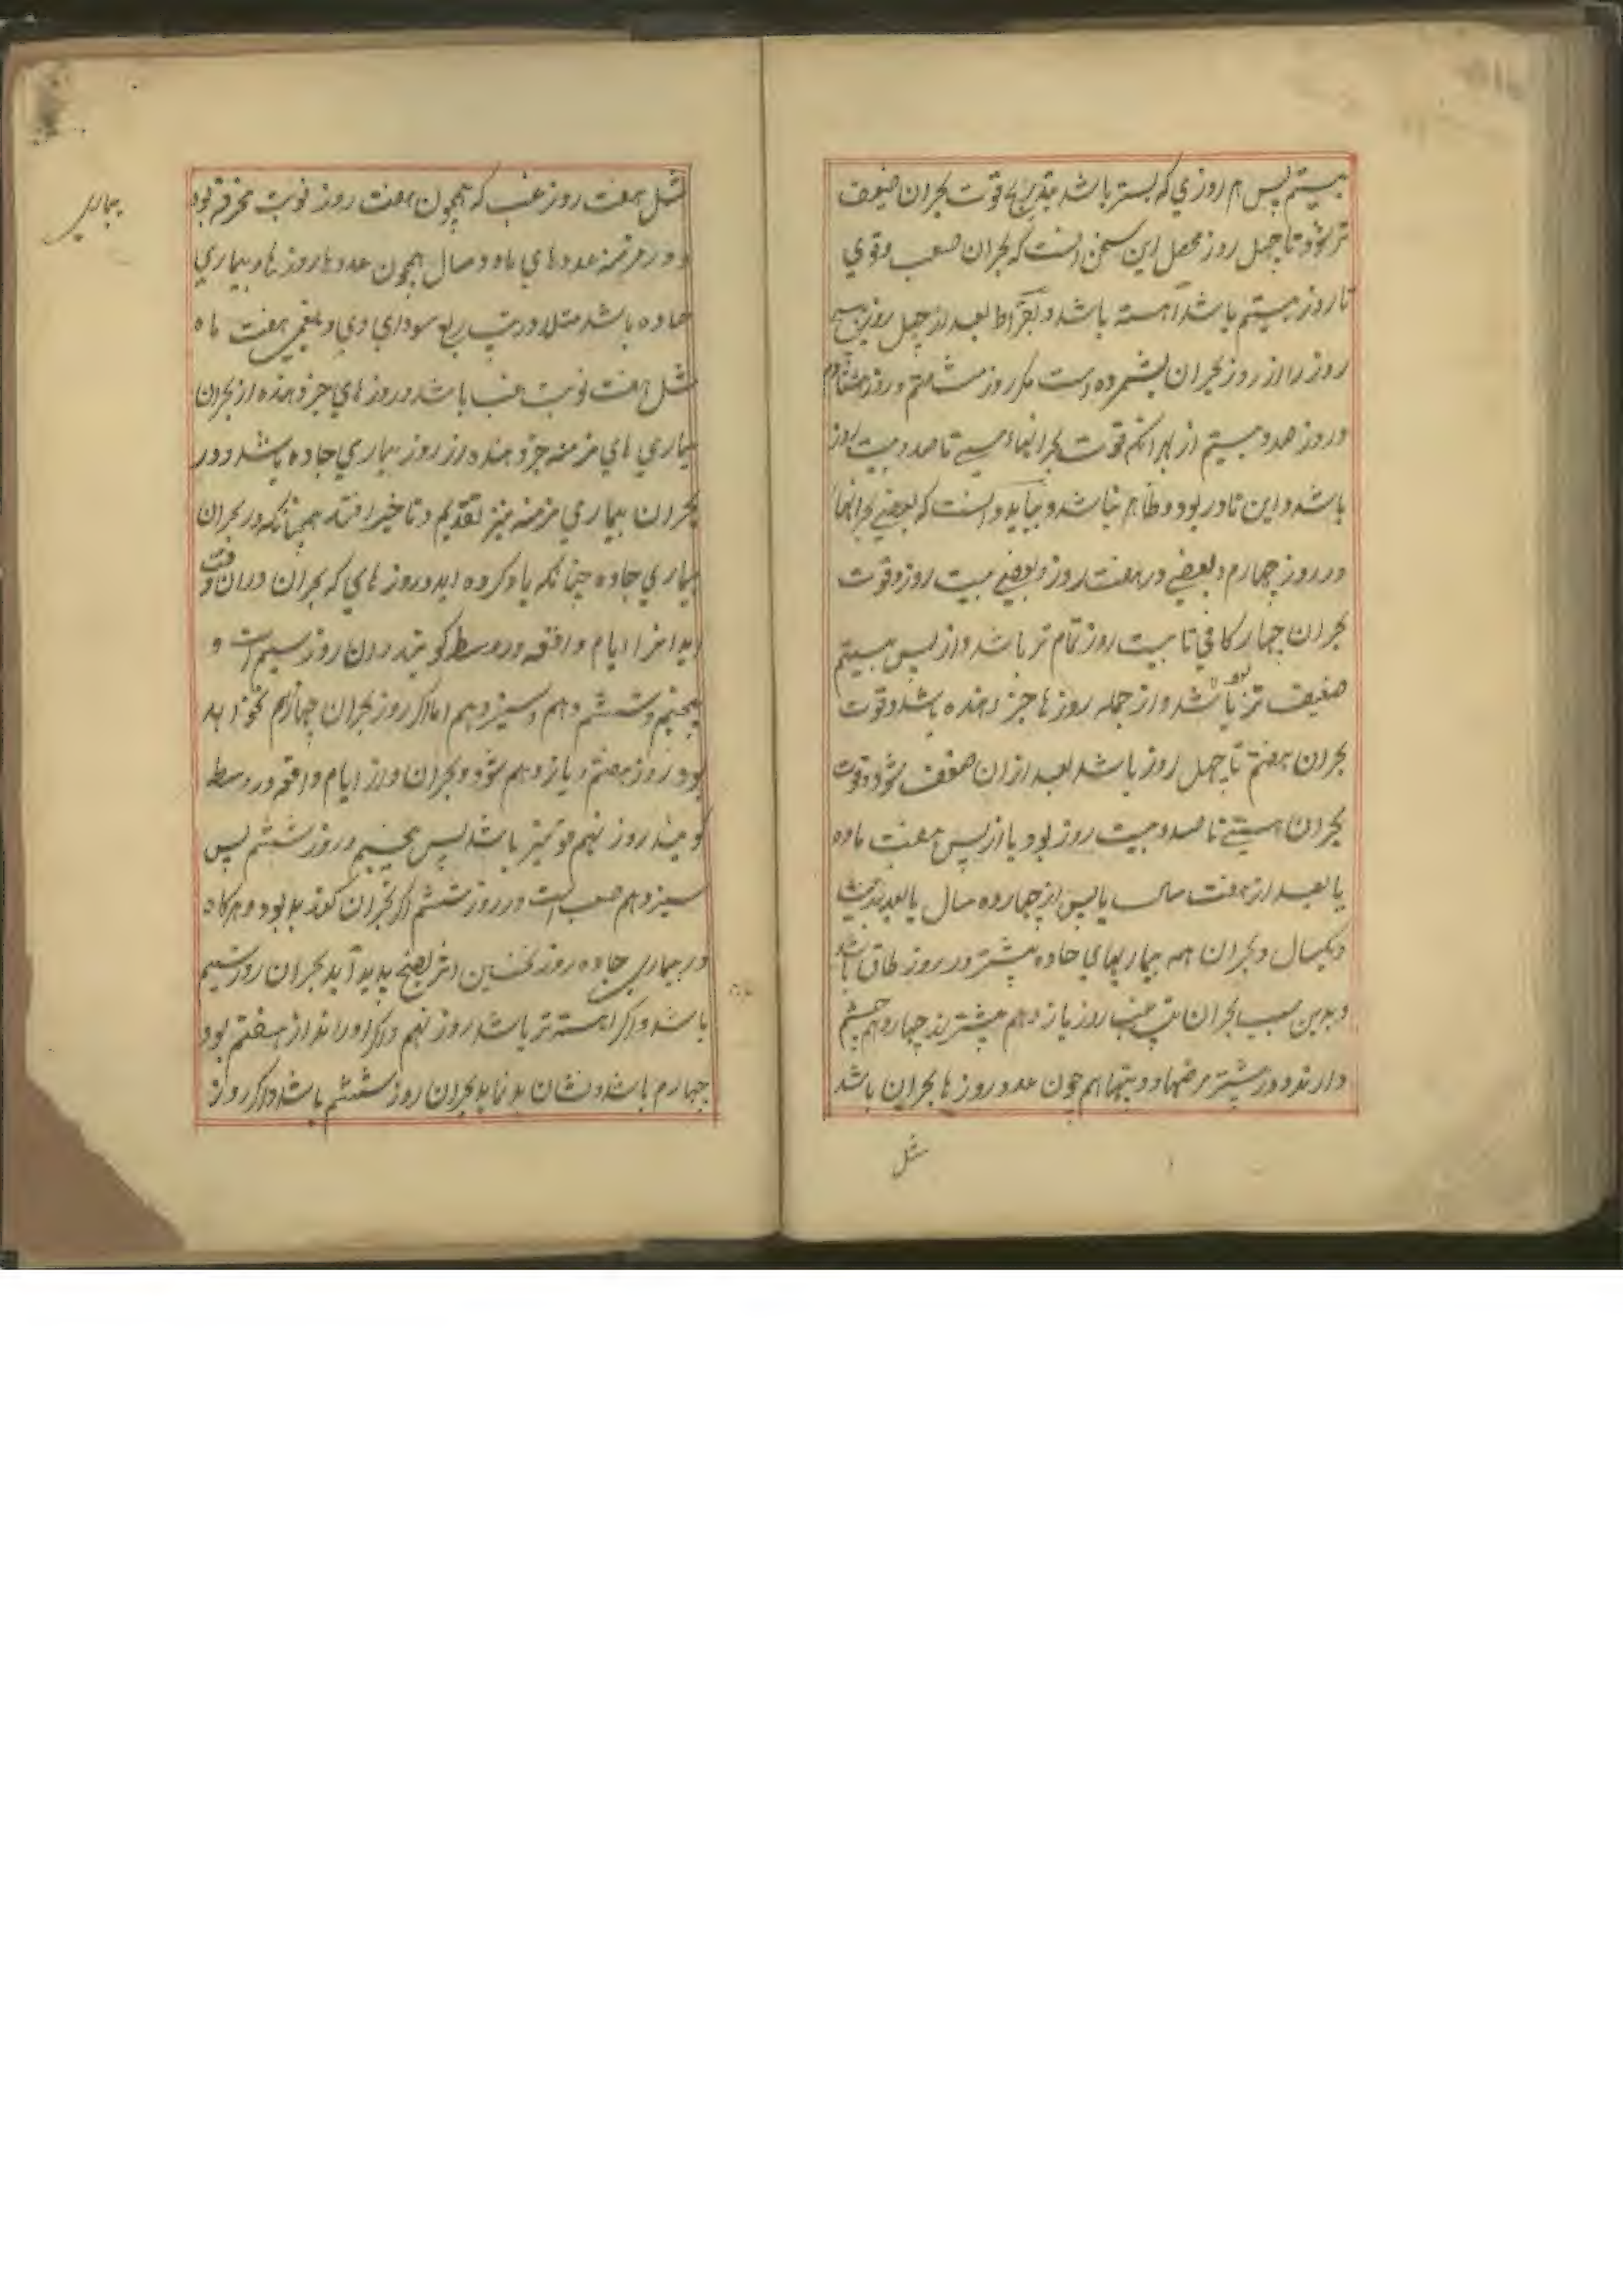 بیستم پس هر روزي که بستر باشد بتدریج قوت بحران ضعیف
تر شود تا چهل روز محصل این سخن انست که بحران صعب و قوي
تا روز بیستم باشد آهسته باشد و بقراط بعد از چهل روز هیچ
روز را از روز بحران نشمرده است مکر روز شصتم و روز هشتادم
و روز صد و بیستم از بهر انکه قوت بحرانهاء تا صد و بیست روز
باشد و این نادر بود و ظاهر نباشد و بباید دانست که بعضی بحرانها
در روز چهارم و بعضے در هفت روز و بعضے بیست روز و قوت
بحران چهارکانی تا بیست روز تمام تر باشد و از پس بیستم
ضعیف تر باشد و از جمله روز ها خبر دهنده باشد و قوت
بحران هفتم تا چهل روز باشد بعد ازان ضعف شود و قوت
بحران بیستے تا صد و بیست روز بود یا از پس هفت ماه
یا بعد از هفت سال یا پس از چهارده سال یا بعد بیست
و یکسال و بحران همه بیماریهاي حاده بیشتر در روز طاق باشد
و بدین سبب بحران تپ غب روز یازدهم بیشتر از چهاردهم چشم
دارند و در بیشتر مرضها و تپها هم چون عدد روز ها بحران باشد
مثل
مثل هفت روز غب که همچون هفت روز نوبت محرقه بود
و در مزمنه عدد هاي ماه و سال همچون عدد ها روز ها و بیماري
حاده باشد مثلا در تپ ربع سوداي و بلغمی هفت ماه
مثل هفت نوبت غب باشد و روز هاي خبر دهنده از بحران
بیماري هاي مزمنه خبر دهنده از روز بیماري حاده باشد و در
بحران بیماري مزمنه نیز تقدیم و تاخیر افتد همچنانکه در بحران
بیماري حاده چنانکه یاد کرده اید و روز هاي که بحران دران وقت
اید انرا ایام واقعه در وسط کویند و ان روز سیم است و
پنجم و ششم و نهم و سیزدهم اما اکر روز بحران چهارم نخواهد
بود روز هفتم و یازدهم شود و بحران و از ایام واقعه در وسط
کویند روز نهم قوتیتر باشد پس پنجم و روز ششم پس
سیزدهم صعب است و در روز ششم اکر بحران کند بد بود و هرکاه
در بیماری حاده روز نخستین اثر نضج پدید آید بحران روز سیم
باشد و اکر اهسته تر باشد روز نهم و اکر از هفتم بود
چهارم باشد و نشان بد نماید بحران روز ششم باشد و اکر روز
بیماری